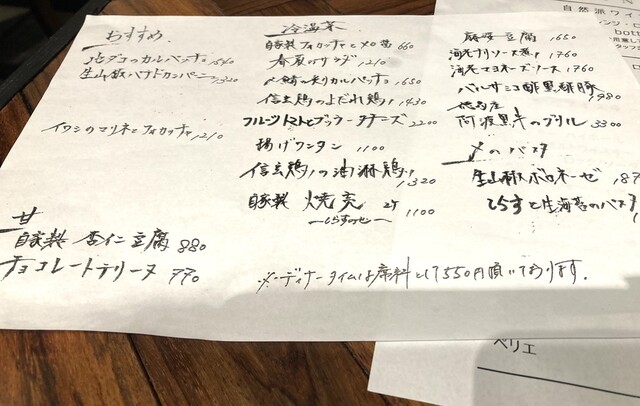 おすすめ
地ダコのカルパッチョ 1540
生山椒バナドカンパーニュ 1320
イワシのマリネとフォカッチャ 1210
甘
自家製 杏仁豆腐 880
チョコレートテリーヌ 770
冷温菜
自家製フォカッチャと 660
春夏のサラダ 1210
炙りカルパッチョ 1650
信玄鶏のよだれ鶏 1430
フルーツトマトとブッラータチーズ 2200
揚げワンタン 1100
信玄鶏の油淋鶏 1320
自家製 焼売 2ケ 1100
麻婆豆腐 1650
海老チリソース煮 1760
海老マヨネーズソース 1760
バルサミコ酢黒酢豚 1980
徳島産
阿波黒牛のグリル 3300
〆のパスタ
生山椒ボロネーゼ 187
しらすと生海苔のパスタ
※ディナータイムは席料として550円頂いております。
自然派ワイ
bott
ペリエ